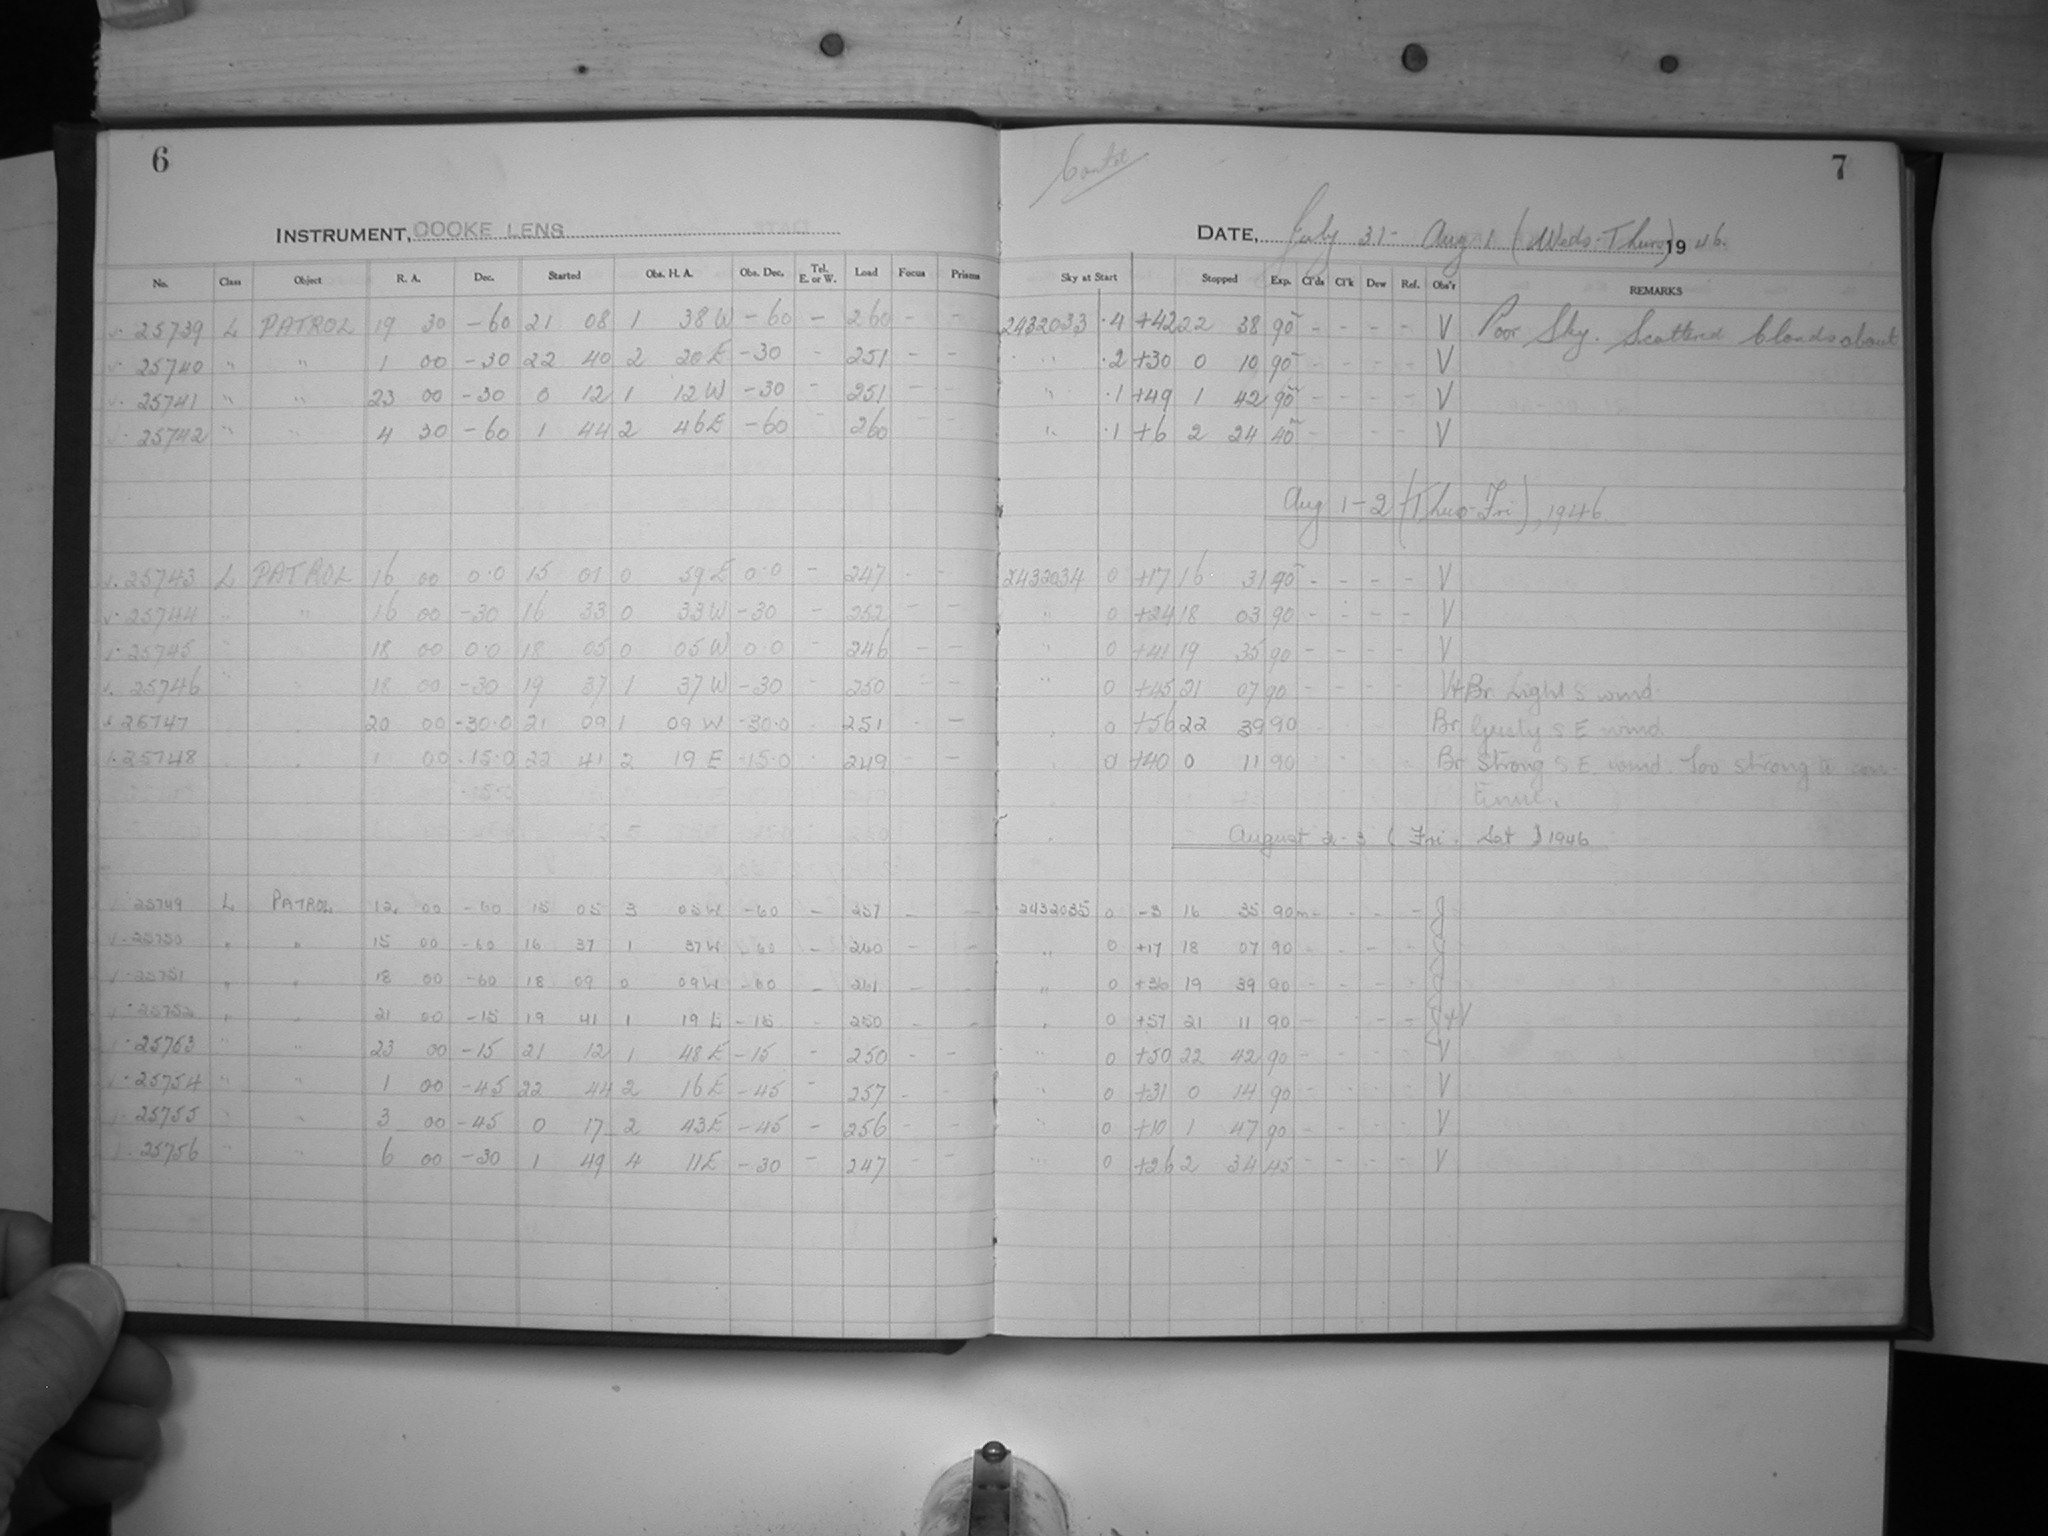 6
INSTRUMENT, COOKE LENS
No. Class Object R. A. Dec. Started Obs. H. A. Obs. Dec. Tel. E. or W. Load Focus Prisms
25739 L PATROL 19 30 -60 21 08 1 38 W -60 - 260 - -
25740 " " 1 00 -30 22 40 2 20 E -30 - 251 - -
25741 " " 23 00 -30 0 12 1 12 W -30 - 251 - -
25742 " " 4 30 -60 1 44 2 46 E -60 260 - -
25743 L PATROL 16 00 0.0 15 01 0 59 E 0.0 - 247 - -
25744 " " 16 00 -30 16 33 0 33 W -30 - 252 - -
25745 " " 18 00 0.0 18 05 0 05 W 0.0 - 246 - -
25746 " " 18 00 -30 19 37 1 37 W -30 250 - -
25747 20 00 -30.0 21 09 1 09 W -30.0 251 - -
25748 1 00 -15.0 22 41 2 19 E -15.0 249 - -
25749 L PATROL 12 00 -60 15 05 3 05 W -60 - 257 - -
25750 " " 15 00 -60 16 37 1 37 W -60 - 260 - -
25751 " " 18 00 -60 18 09 0 09 W -60 - 261 - -
25752 " " 21 00 -15 19 41 1 19 E -15 - 250 - -
25753 " " 23 00 -15 21 12 1 48 E -15 - 250 - -
25754 " " 1 00 -45 22 44 2 16 E -45 - 257 - -
25755 " " 3 00 -45 0 17 2 43 E -45 - 256 - -
25756 " " 6 00 -30 1 49 4 11 E -30 - 247 - -
Contd
7
DATE, July 31 - Aug 1 (Weds-Thurs) 1946.
Sky at Start Stopped Exp. Cl'ds Cl'k Dew Ref. Obs'r REMARKS
2432033 .4 +42 22 38 90 - - - - V Poor Sky. Scattered Clouds about
" .2 +30 0 10 90 - - - - V
" .1 +49 1 42 90 - - - - V
" .1 +6 2 24 40 - - - - V
Aug 1-2 (Thus-Fri), 1946
2432034 0 +17 16 31 90 - - - - V
" 0 +24 18 03 90 - - - - V
" 0 +41 19 35 90 - - - - V
" 0 +45 21 07 90 V+Br Light S wind.
" 0 +56 22 39 90 Br Gusty S E wind
" 0 +40 0 11 90 Br Strong S. E. wind. Too strong to con-
tinue.
August 2-3 (Fri. Sat) 1946
2432035 0 -3 16 35 90m - - - - J
" 0 +17 18 07 90 - - - - J
" 0 +36 19 39 90 - - - - J
" 0 +57 21 11 90 - - - - J+V
" 0 +50 22 42 90 - - - - V
" 0 +31 0 14 90 - - - - V
" 0 +10 1 47 90 - - - - V
" 0 +26 2 34 45 - - - - V